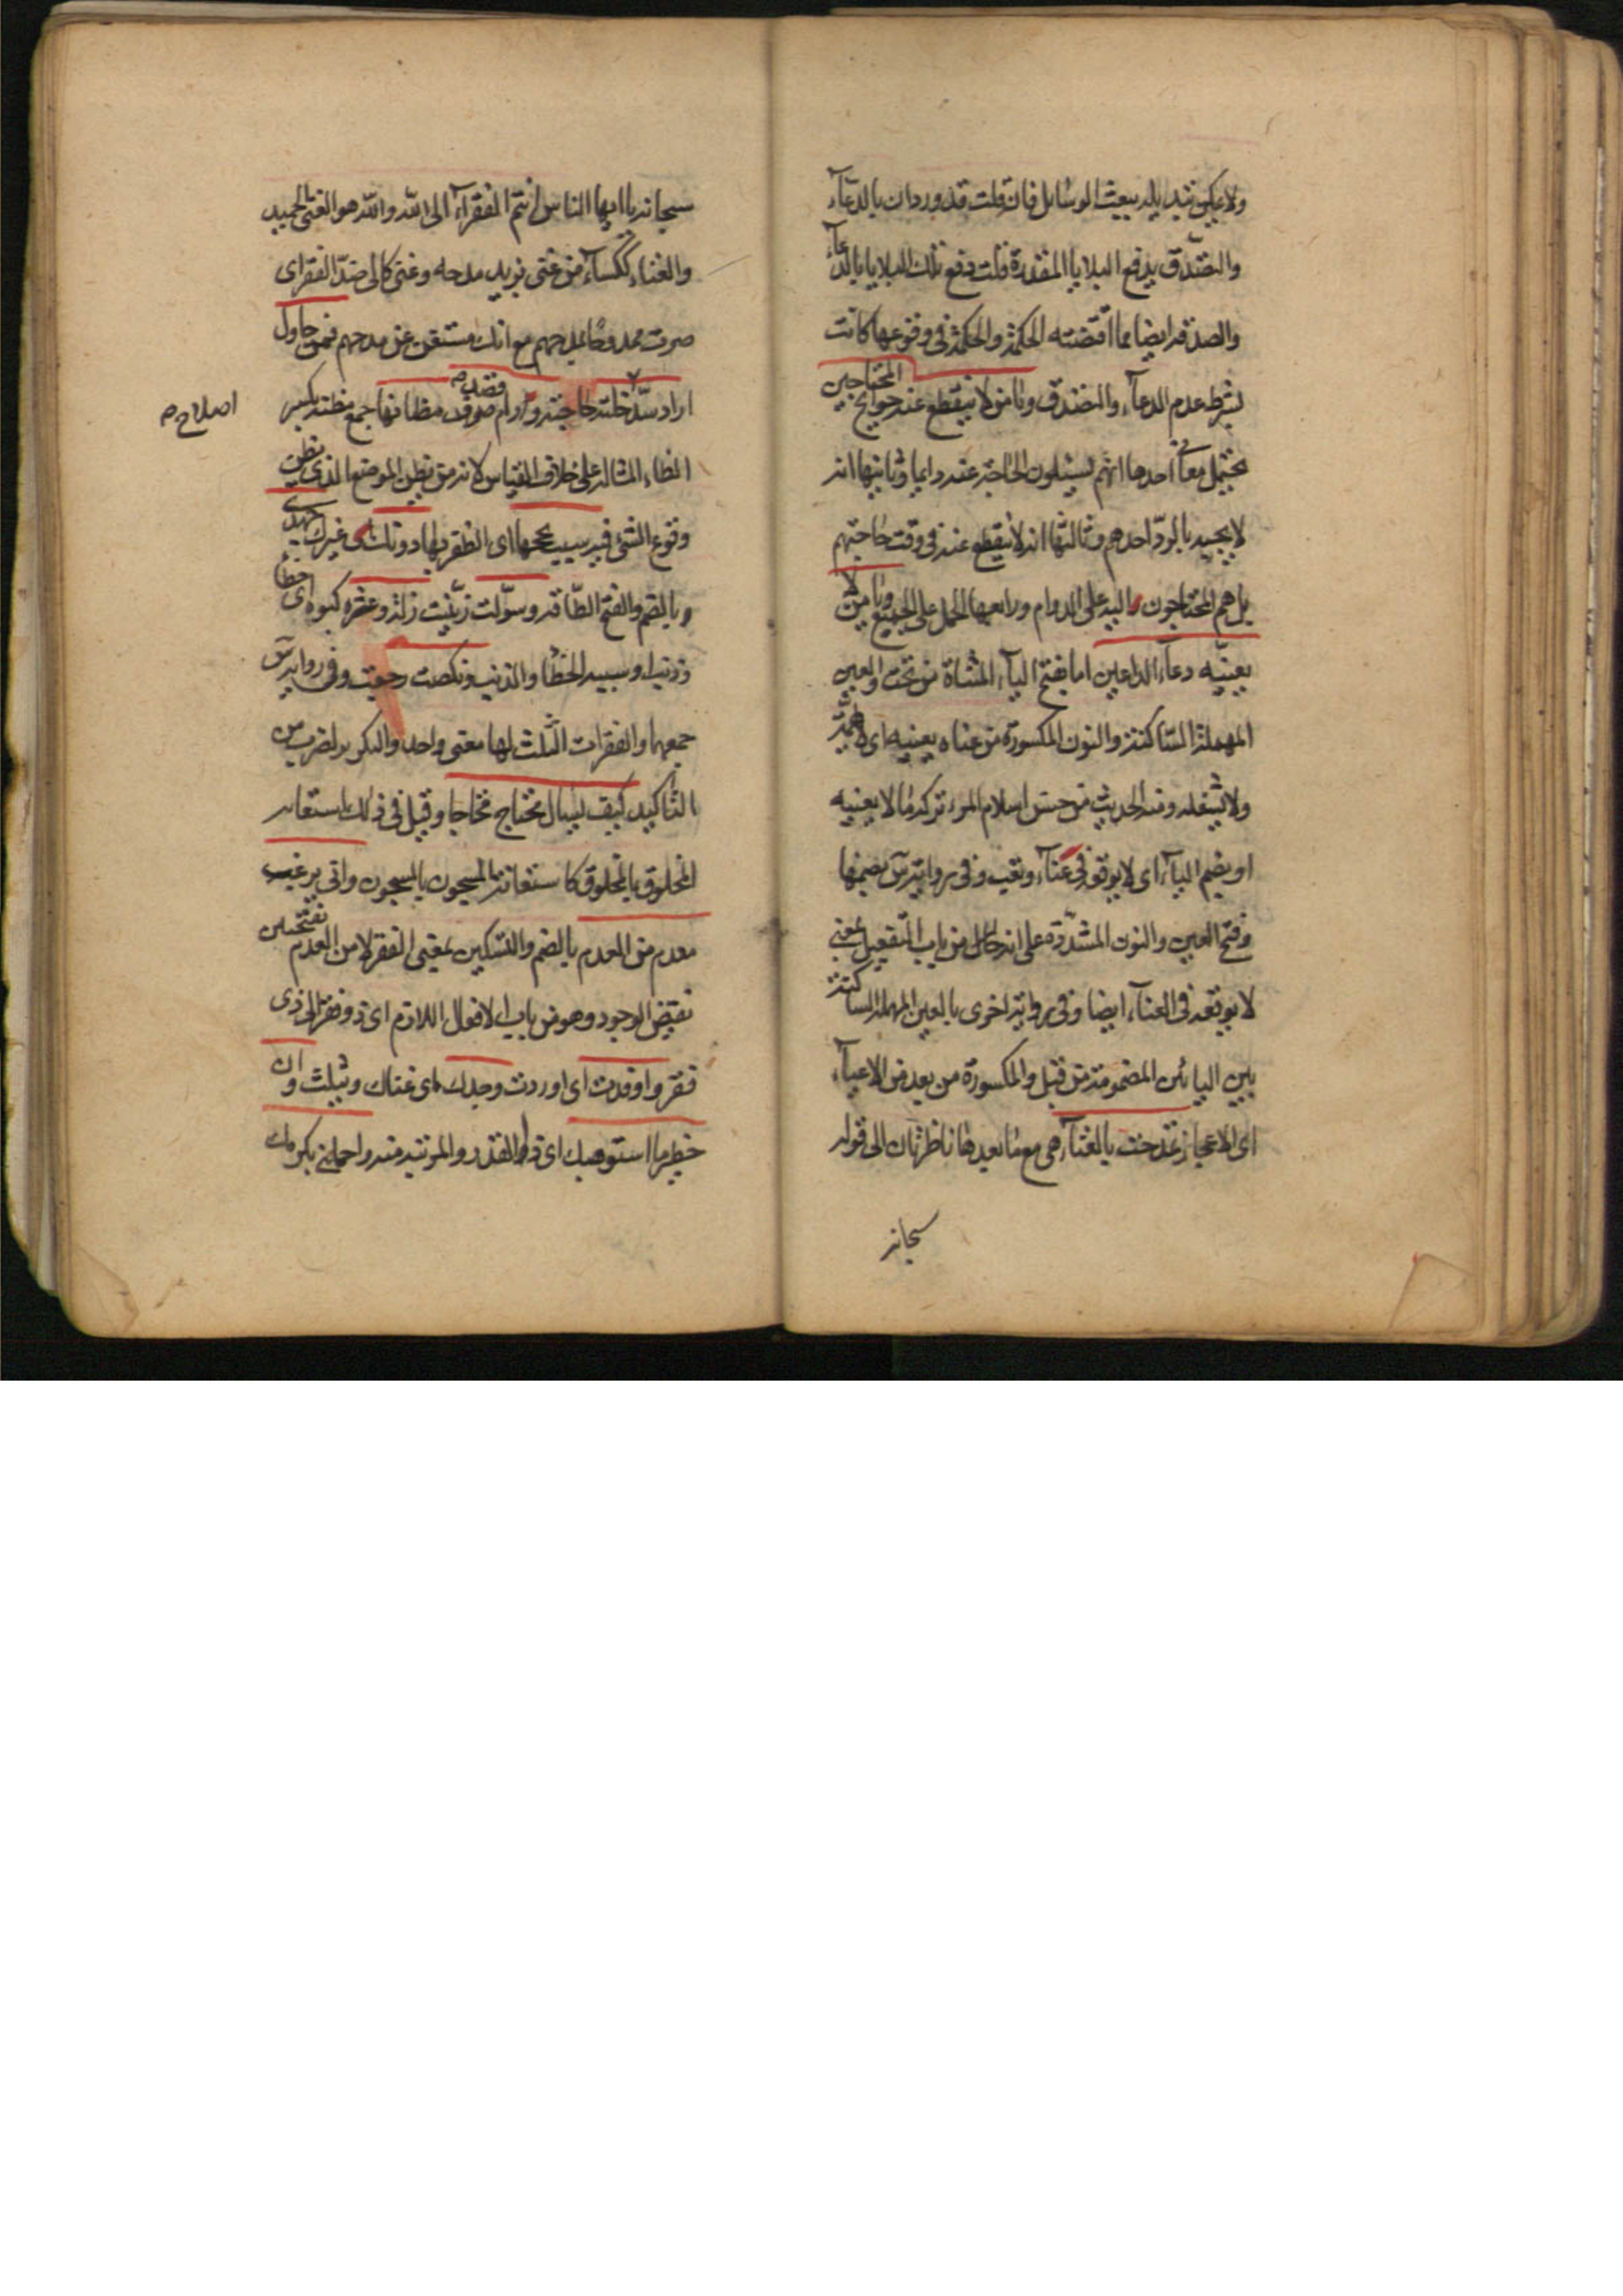 ولا يمكن تبديله ببعث الوسائل فان قلت قد ورد ان بالدعاء
والتصدق يدفع البلايا المقدرة قلت دفع تلك البلايا بالدعاء
والصدقة ايضا مما اقتضته الحكمة والحكمة في وقوعها كانت
بشرط عدم الدعاء والتصدق ويا من لا ينقطع عنه حوائج المحتاجين
يحتمل معاني احدها انهم يسئلون الحاجة عنه دايما وثانيها انه
لا يجيبه بالرد احدهم وثالثها انه لا ينقطع عنه في وقت حاجتهم
بل هم المحتاجون اليه على الدوام ورابعها الحمل على الجميع ويا من لا
يعنيه دعاء الداعين اما بفتح الياء المثناة من تحت والعين
المهملة الساكنة والنون المكسورة من عناه يعنيه اي لا يهمه
ولا يشغله ومنه الحديث من حسن اسلام المرء تركه ما لا يعنيه
او بضم الياء اي لا يوقعه في عناء وتعب وفي رواية س بضمها
وفتح العين والنون المشددة على انه حال من باب التفعيل يعني
لا يوقعه في العناء ايضا وفي رواية اخرى بالعين المهملة الساكنة
بين اليائين المضمومة من قبل والمكسورة من بعد من الاعياء
اي الاعجاز تمدحت بالغناء هي مع ما بعدها ناظرتان الى قوله
سبحانه
سبحانه يا ايها الناس انتم الفقراء الى الله والله هو الغني الحميد
والغناء ككساء من غنى يريد مدحه وغنى كالى ضد الفقر اي
صرت ممدوحا بمدحهم مع انك مستغن عن مدحهم فمن حاول
اراد سد خلته حاجته ورام صرف قصد مظانها جمع مظنة بكسر
اصلاح ص
الظاء المشالة على خلاف القياس لانه من يظن الموضع الذي يظن
وقوع الشئ فيه سبب نجحها اي الظفر بها دونك اي غيرك جهدي
وبالضم والفتح الطاقة وسولت زينت زلة وعثرة كبوة اي خطأ
وذنبا وسببه الخطأ والذنب ونكصت رجعت وفي رواية س
جمعها والفقرات الثلث لها معنى واحد والتكرير لضرب من
التأكيد كيف يسال محتاج محتاجا وقيل في ذلك استغاثة
المخلوق بالمخلوق كاستغاثة المسجون بالمسجون وانى يرغب
معدم من العدم بالضم والتسكين بمعنى الفقر لا من العدم بفتحتين
نقيض الوجود وهو من باب الافعال اللازم اي ذو فقر الى ذي
فقر واوفدت اي اوردت وجدك اي غناك ونيلت وان
خطر ما استوهبك اي ذا القدر والمرتبة منه واحملني بكرمك